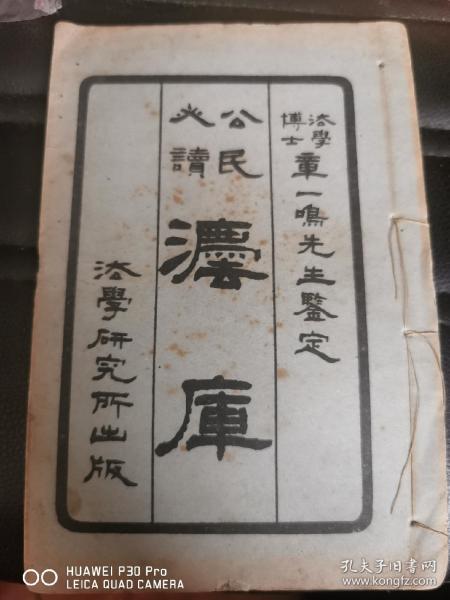 法學博士章一鳴先生鑒定
公民必讀
灋庫
法學研究所出版
HUAWEI P30 Pro
LEICA QUAD CAMERA
孔夫子旧书网
www.kongfz.com